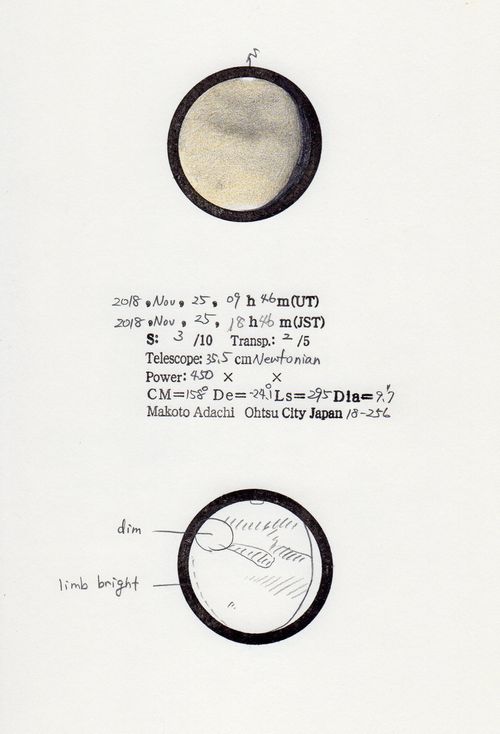 S
2018, Nov, 25, 09 h 46 m (UT)
2018, Nov, 25, 18 h 46 m (JST)
S: 3 /10 Transp.: 2 /5
Telescope: 35.5 cm Newtonian
Power: 450 × ×
CM=158° De=-24.1° Ls=295 Dia=9.7"
Makoto Adachi Ohtsu City Japan 18-256
dim
limb bright
P.